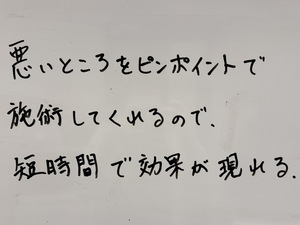 悪いところをピンポイントで
施術してくれるので、
短時間で効果が現れる.